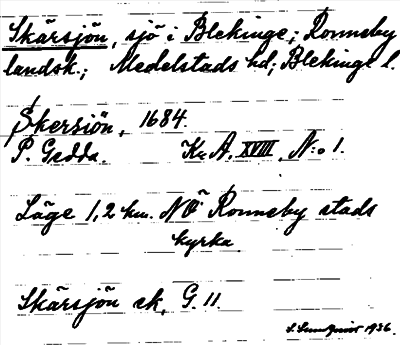 Skärsjön, sjö i Blekinge; Ronneby
landsk.; Medelstads hd; Blekinge l.
Skersiön, 1684.
P. Gedda. Kr. A. XVIII, N:o 1.
Läge 1,2 km. NÖ Ronneby stads
kyrka.
Skärsjön ek, G. 11.
1936.